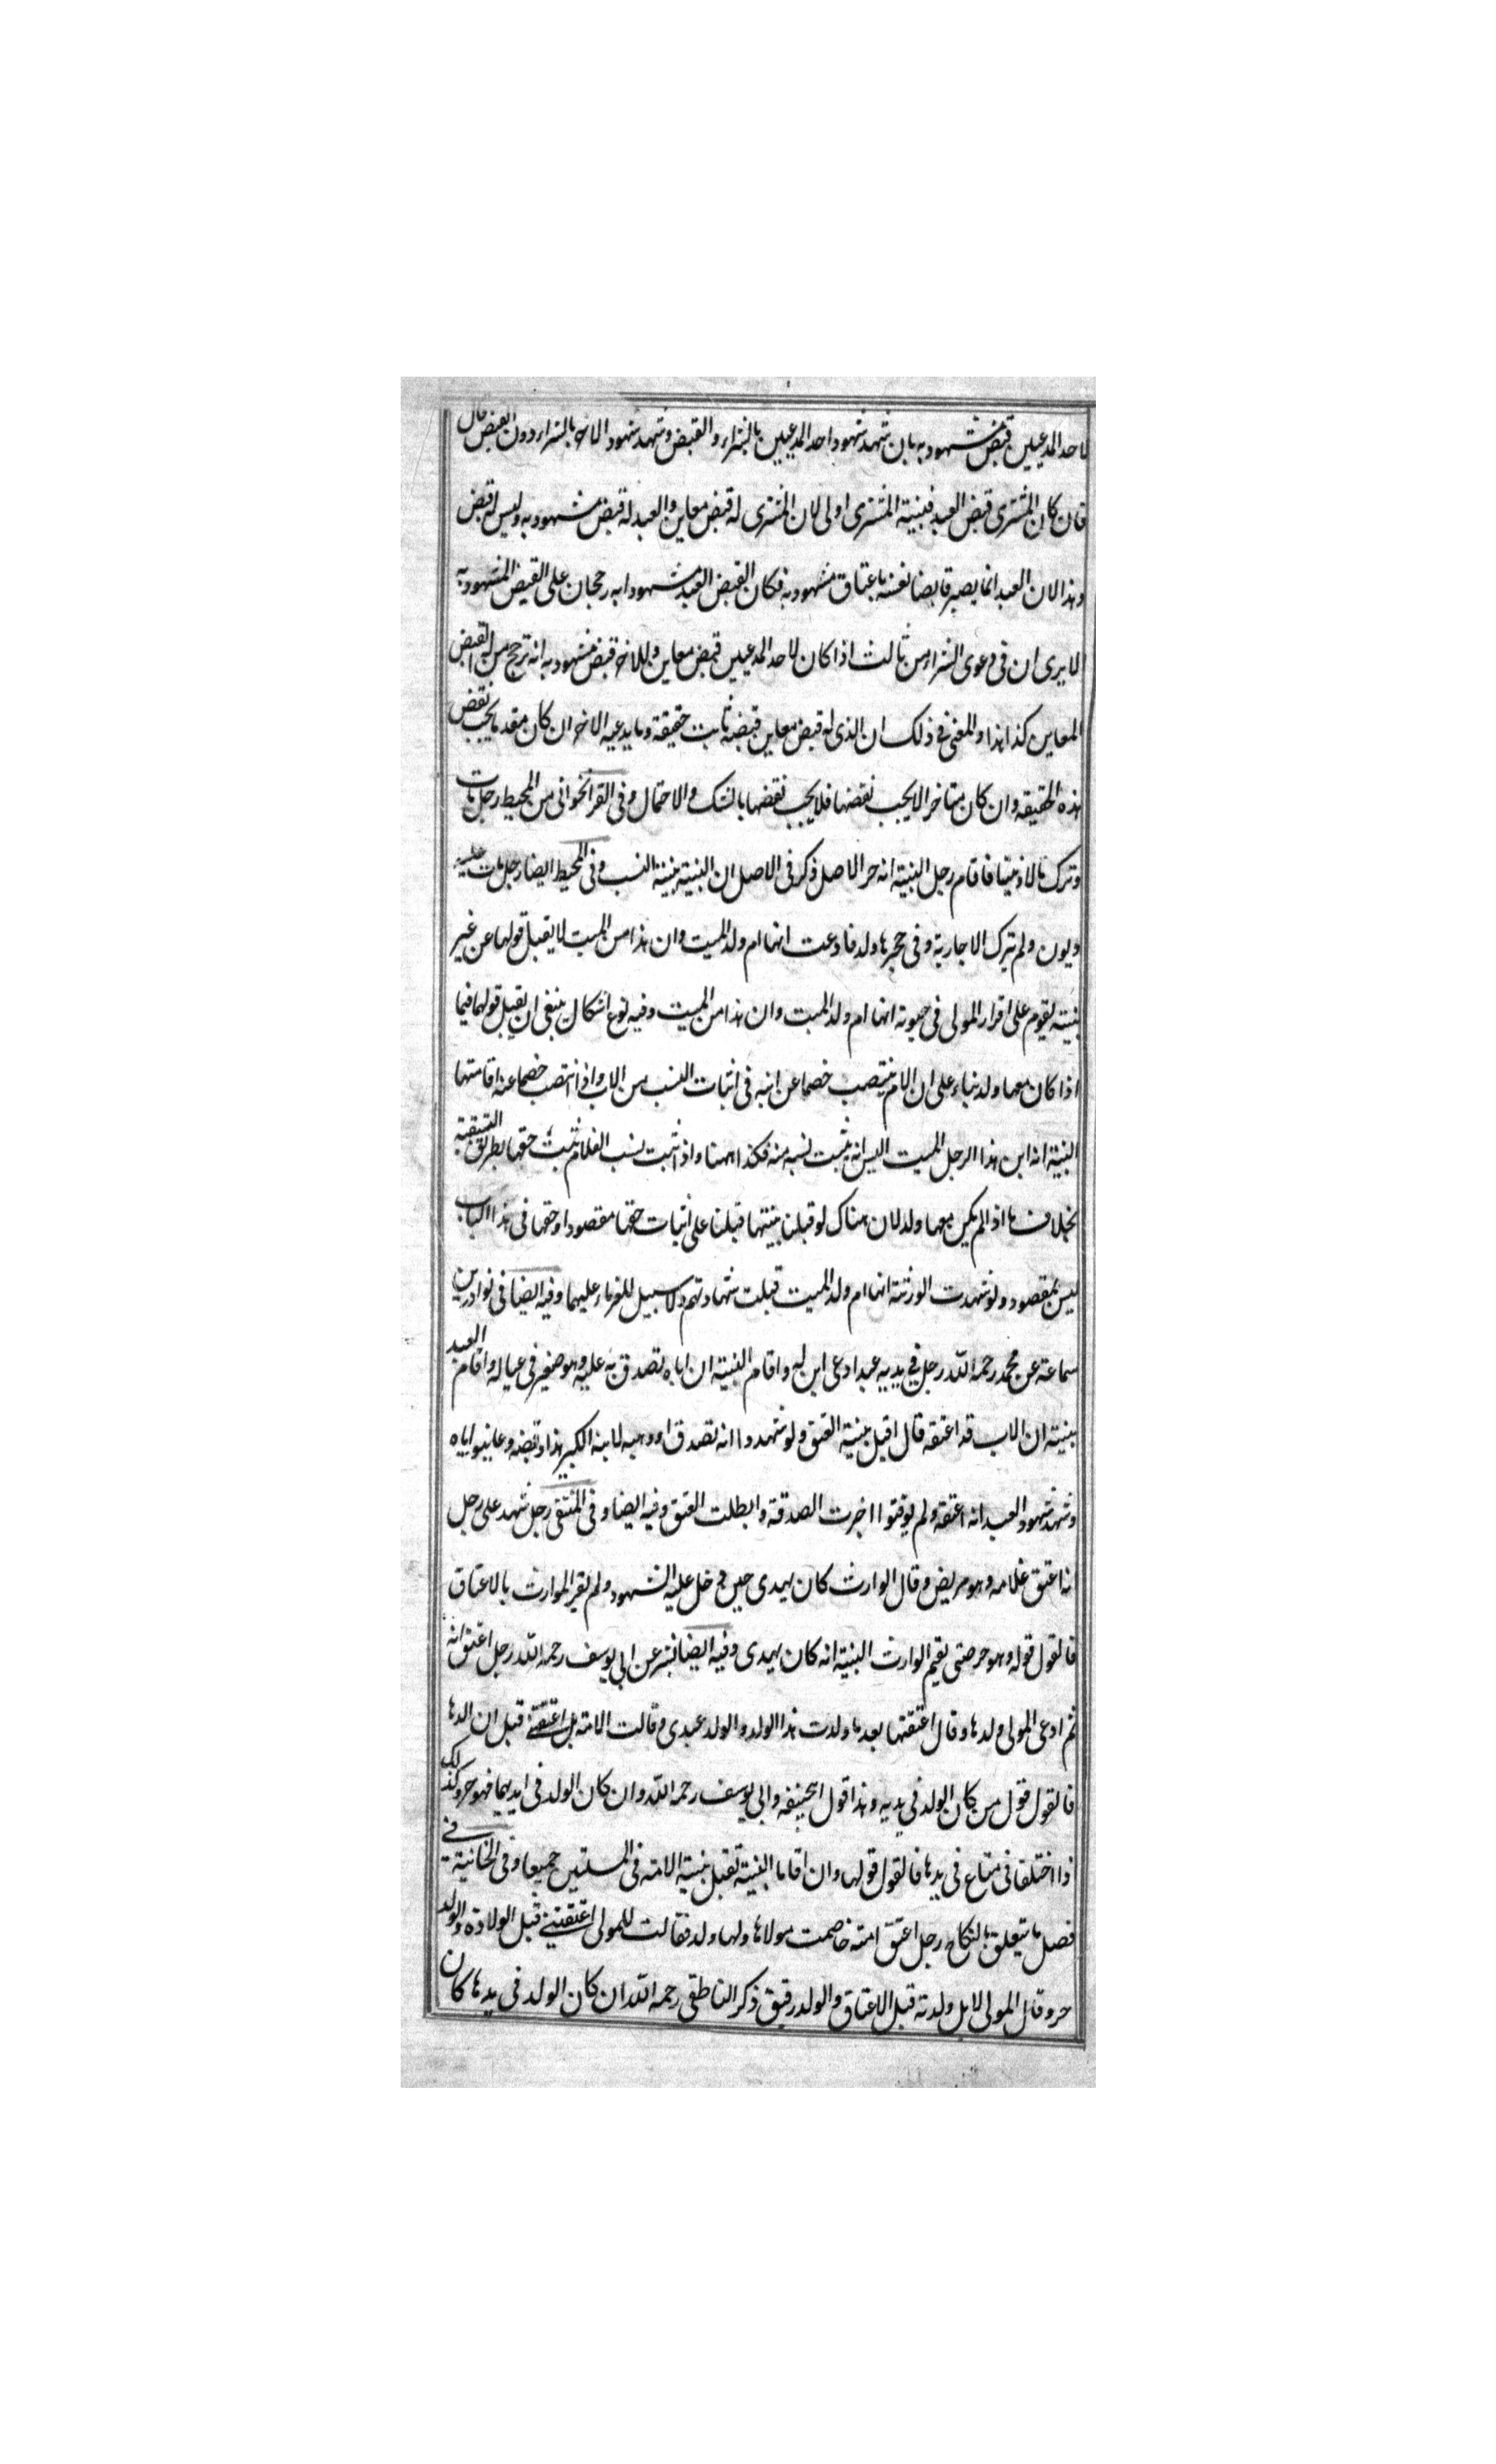 لاحد المدعيين قبض مشهود به بان شهد شهود احد المدعيين بالشراء والقبض وشهد شهود الاخر بالشراء دون القبض قال
فان كان المشترى قبض العبد فبينة المشترى اولى لان المشترى له قبض معاين والعبد له قبض مشهود به وليس له قبض
وهذا لان العبد انما يصير قابضا نفسه باعتاق مشهود به فكان القبض العبد مشهودا به رجحان على القبض المشهود به
الا يرى ان فى دعوى الشراء من ثالث اذا كان لاحد المدعيين قبض معاين وللاخر قبض مشهود به انه ترجح من له القبض
المعاين كذا هذا والمعنى فى ذلك ان الذى له قبض معاين قبضه ثابت حقيقة وما يدعيه الاخر ان كان مقدما يجب نقض
هذه الحقيقة وان كان متاخرا لا يجب نقضها فلا يجب نقضها بالشك والاحتمال وفى القراخوانى من المحيط رجل مات
وترك مالا وميتا فاقام رجل البينة انه حر الاصل ذكر فى الاصل ان البينة بينة النسب وفى المحيط ايضا رجل مات عليه
ديون ولم يترك الا جارية وفى حجرها ولد فادعت انها ام ولد الميت وان هذا من الميت لا يقبل قولها عن غير
بينة يقوم على اقرار المولى فى حيوته انها ام ولد الميت وان هذا من الميت وفيه نوع اشكال ينبغى ان يقبل قولها فيما
اذا كان معها ولد بناء على ان الام ينتصب خصما عن ابنه فى اثبات النسب من الاب واذا انتصب خصما عنه اقامتها
البينة انه ابن هذا الرجل الميت اليس انه يثبت نسبه منه فكذا ههنا واذا ثبت نسب الغلام ثبت حقها بطريق التبعية
بخلاف ما اذا لم يكن معها ولد لان هناك لو قبلنا بينتها قبلنا على اثبات حقها مقصودا وحقها فى هذا الباب
ليس بمقصود ولو شهدت الورثة انها ام ولد الميت قبلت شهادتهم ولا سبيل للغرماء عليهما وفيه ايضا فى نوادر بن
سماعة عن محمد رحمه الله رجل فى يديه عبد ادعى ابن له واقام البينة ان اباه تصدق به عليه وهو صغير فى عياله واقام العبد
بينة ان الاب قد اعتقه قال اقبل بينة العتق ولو شهدوا انه تصدق او وهبه لابنه الكبير هذا وقبضه وعاينوا اياه
وشهد شهود العبد انه اعتقه ولم يوقتوا اخرت الصدقة وابطلت العتق وفيه ايضا وفى المنتقى رجل شهد على رجل
انه اعتق غلامه وهو مريض وقال الوارث كان يهذى حين دخل عليه الشهود ولم يقر الوارث بالاعتاق
فالقول قوله وهو حر حتى يقيم الوارث البينة انه كان يهذى وفيه ايضا بشر عن ابى يوسف رحمه الله رجل اعتق امته
ثم ادعى المولى ولدها وقال اعتقتها بعد ما ولدت هذا الولد والولد عبدى وقالت الامة بل اعتقتنى قبل ان الدها
فالقول قول من كان الولد فى يديه وهذا قول ابيحنيفة وابى يوسف رحمه الله وان كان الولد فى ايديهما فهو حر وكذلك
اذا اختلفا فى متاع فى يدها فالقول قولها وان اقاما البينة تقبل بينة الامة فى المسئلتين جميعا وفى الخانية فى
فصل ما يتعلق بالنكاح رجل اعتق امته خاصمت مولاها ولها ولد فقالت للمولى اعتقتنى قبل الولادة والولد
حر وقال المولى لا بل ولدته قبل الاعتاق والولد رقيق ذكر الناطقى رحمه الله ان كان الولد فى يدها كان